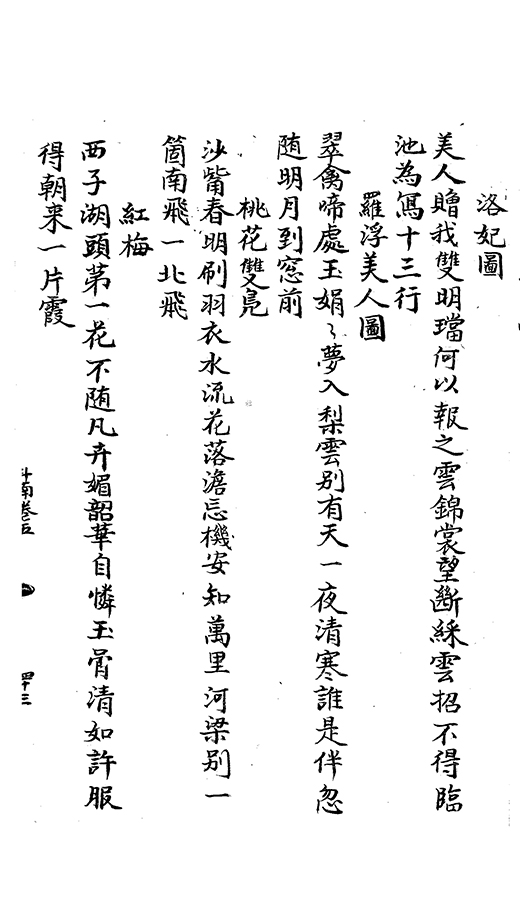 洛妃圖
美人贈我雙明璫何以報之雲錦裳望斷綵雲招不得臨
池為寫十三行
羅浮美人圖
翠禽啼處玉娟〻夢入梨雲别有天一夜清寒誰是伴忽
随明月到窓前
桃花雙鳧
沙觜春明刷羽衣水流花落澹忘機安知萬里河梁别一
箇南飛一北飛
紅梅
西子湖頭苐一花不随凡卉媚韶華自憐玉骨清如許服
得朝来一片霞
斗南卷五
四十三